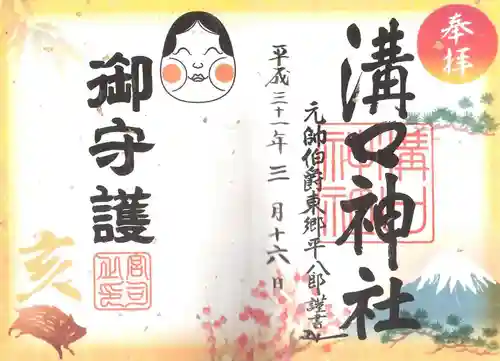 奉拝
溝口神社
元帥伯爵東郷平八郎謹書
平成三十一年三月十六日
御守護
宮司之印
亥
溝口神社